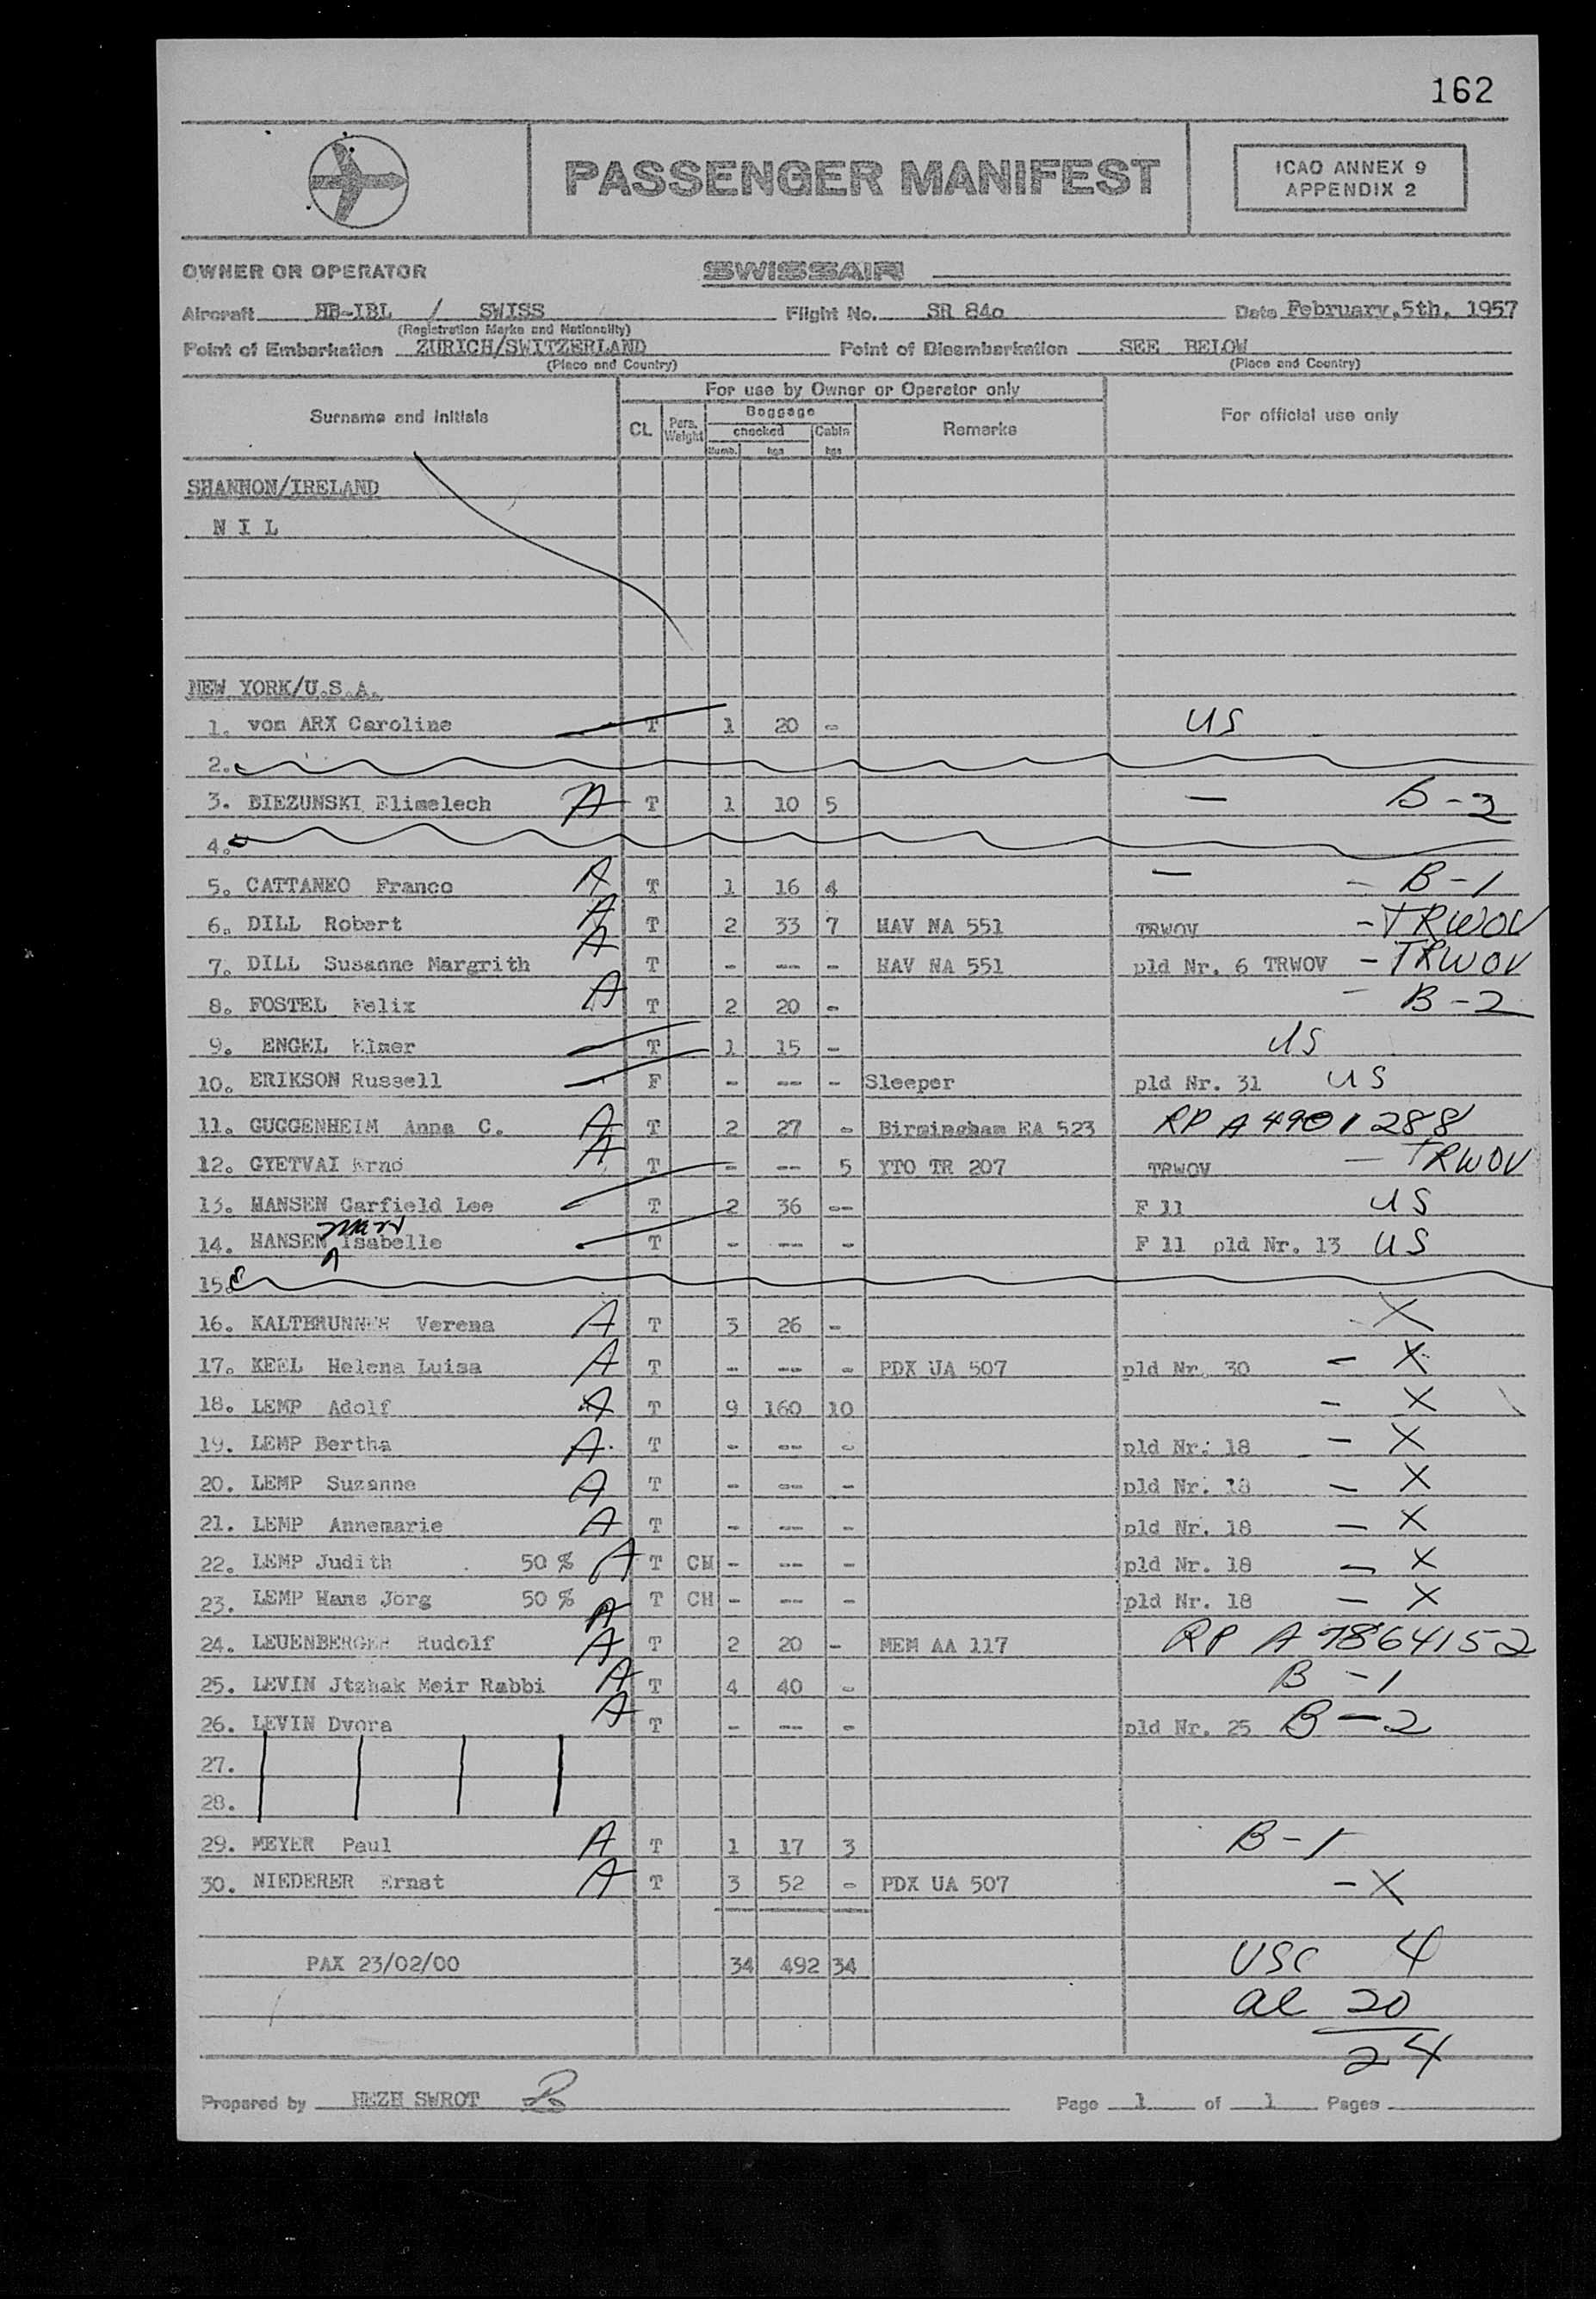 162
PASSENGER MANIFEST
ICAO ANNEX 9
APPENDIX 2
OWNER OR OPERATOR SWISSAIR
Aircraft HB-IBL / SWISS Flight No. SR 84o Date February,5th, 1957
(Registration Marks and Nationality)
Point of Embarkation ZURICH/SWITZERLAND Point of Disembarkation SEE BELOW
(Place and Country) (Place and Country)
For use by Owner or Operator only
Surname and Initials CL. Pers. Weight Baggage checked Cabin Remarks For official use only
Numb. kgs kgs
SHANNON/IRELAND
N I L
NEW YORK/U.S.A.
1. von ARX Caroline T 1 20 - US
2.
3. BIEZUNSKI Elimelech A T 1 10 5 — B-2
4.
5. CATTANEO Franco A T 1 16 4 — - B-1
6. DILL Robert A T 2 33 7 HAV NA 551 TRWOV - TRWOV
7. DILL Susanne Margrith A T - -- - HAV NA 551 pld Nr. 6 TRWOV - TRWOV
8. FOSTEL Felix A T 2 20 - - B-2
9. ENGEL Elmer T 1 15 - US
10. ERIKSON Russell F - -- - Sleeper pld Nr. 31 US
11. GUGGENHEIM Anna C. A T 2 27 - Birmingham EA 523 RP A4901288
12. GYETVAI Ernö A T - -- 5 YTO TR 207 TRWOV — TRWOV
13. HANSEN Garfield Lee T 2 36 -- F 11 US
14. HANSEN Isabelle T - -- - F 11 pld Nr. 13 US
15.
16. KALTBRUNNER Verena A T 3 26 - X
17. KEEL Helena Luisa A T - -- - PDX UA 507 pld Nr. 30 - X
18. LEMP Adolf A T 9 160 10 - X
19. LEMP Bertha A T - -- - pld Nr. 18 - X
20. LEMP Suzanne A T - -- - pld Nr. 18 - X
21. LEMP Annemarie A T - -- - pld Nr. 18 - X
22. LEMP Judith 50 % A T CH - -- - pld Nr. 18 - X
23. LEMP Hans Jörg 50 % A T CH - -- - pld Nr. 18 - X
24. LEUENBERGER Rudolf A T 2 20 - MEM AA 117 RP A 7864152
25. LEVIN Jtzhak Meir Rabbi A T 4 40 - B-1
26. LEVIN Dvora A T - -- - pld Nr. 25 B-2
27.
28.
29. MEYER Paul A T 1 17 3 B-1
30. NIEDERER Ernst A T 3 52 - PDX UA 507 - X
PAX 23/02/00 34 492 34 USC 4
al 20
24
Prepared by HEZH SWROT Page 1 of 1 Pages